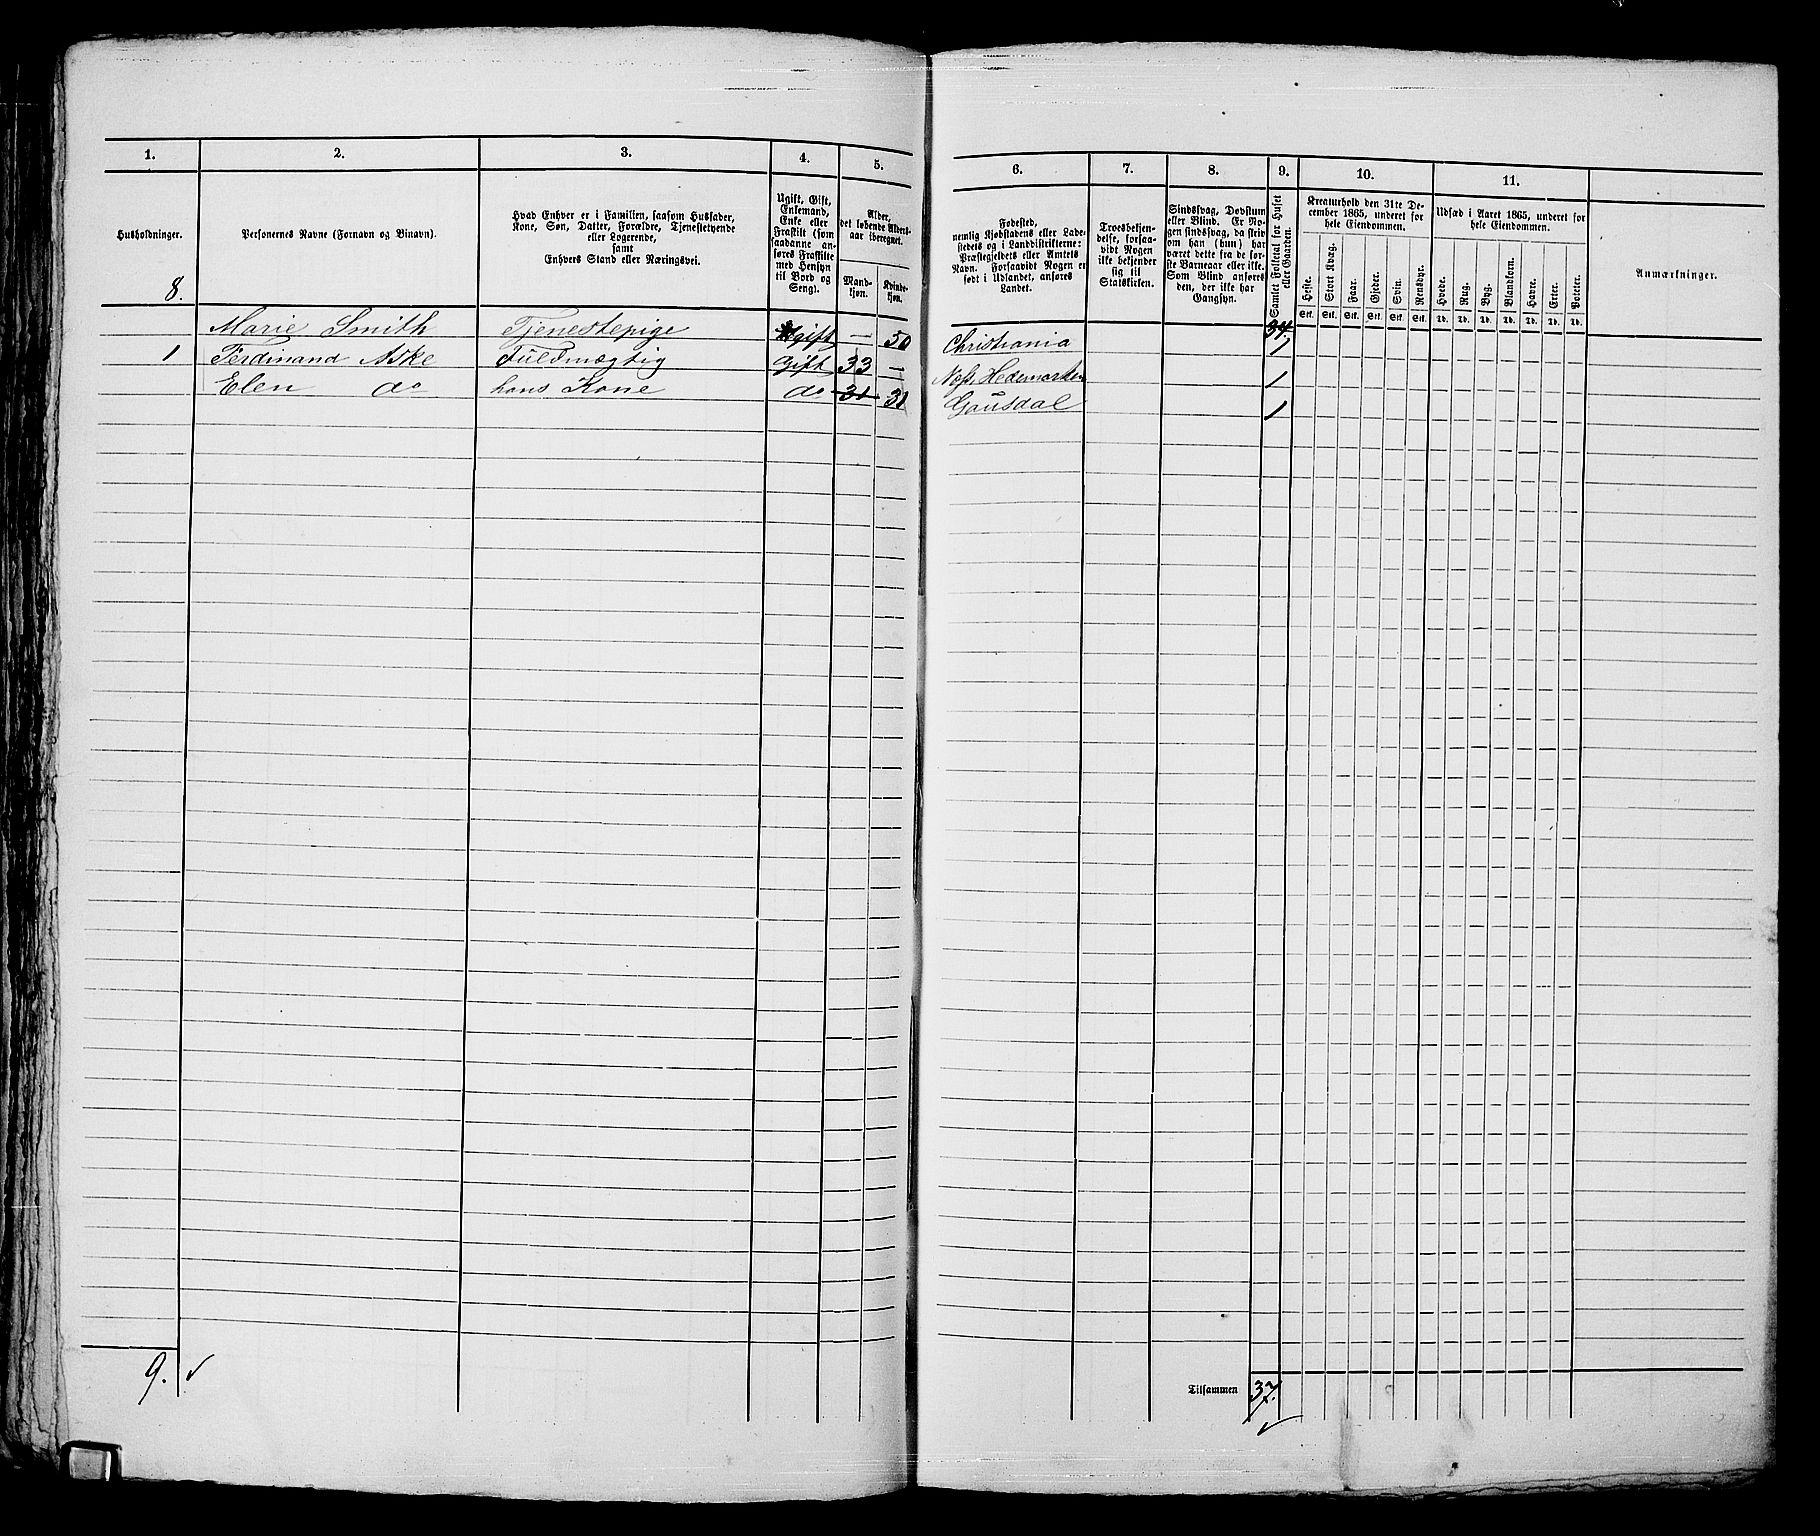 1.
2.
3.
4.
5.
Husholdninger.
8.
Personernes Navne (Fornavn og Binavn).
Hvad Enhver er i Familien, saasom Husfader,
Kone, Søn, Datter, Forældre, Tjenestetyende
eller Logerende,
samt
Enhvers Stand eller Næringsvei.
Ugift, Gift,
Enkemand,
Enke eller
Fraskilt (som
saadanne an-
føres Fraskilte
med Hensyn
til Bord og
Seng).
Alder,
det løbende Alders-
aar iberegnet.
Mand-
kjøn.
Kvinde-
kjøn.
Marie Smith Tjenestepige Ugift — 50
1 Ferdinand Aske Fuldmægtig Gift 33 —
Elen do hans Kone do 31 31
9. ✓
6.
7.
8.
9.
10.
11.
Fødested,
nemlig Kjøbstadens eller Lade-
stedets og i Landdistrikterne:
Præstegjeldets eller Amtets
Navn. Forsaavidt Nogen er
født i Udlandet, anføres
Landet.
Troesbekjen-
delse, forsaa-
vidt Nogen
ikke bekjender
sig til
Statskirken.
Sindssvag, Døvstum
eller Blind. Er No-
gen sindssvag, da skriv
om han (hun) har
været dette fra de før-
ste Barneaar eller ikke.
Som Blind anføres
den, der ikke har
Gangsyn.
Samlet Folketal for Huset
eller Gaarden.
Kreaturhold den 31te De-
cember 1865, underet for
hele Eiendommen.
Heste. Stort Kvæg. Faar. Gjeder. Svin. Rensdyr.
Stk. Stk. Stk. Stk. Stk. Stk.
Udsæd i Aaret 1865, underet for
hele Eiendommen.
Hvede. Rug. Byg. Blandkorn. Havre. Erter. Poteter.
Td. Td. Td. Td. Td. Td. Td.
Anmærkninger.
34.
Christiania 1
Næs, Hedemarken 1
Gausdal 1
Tilsammen 37.
✓